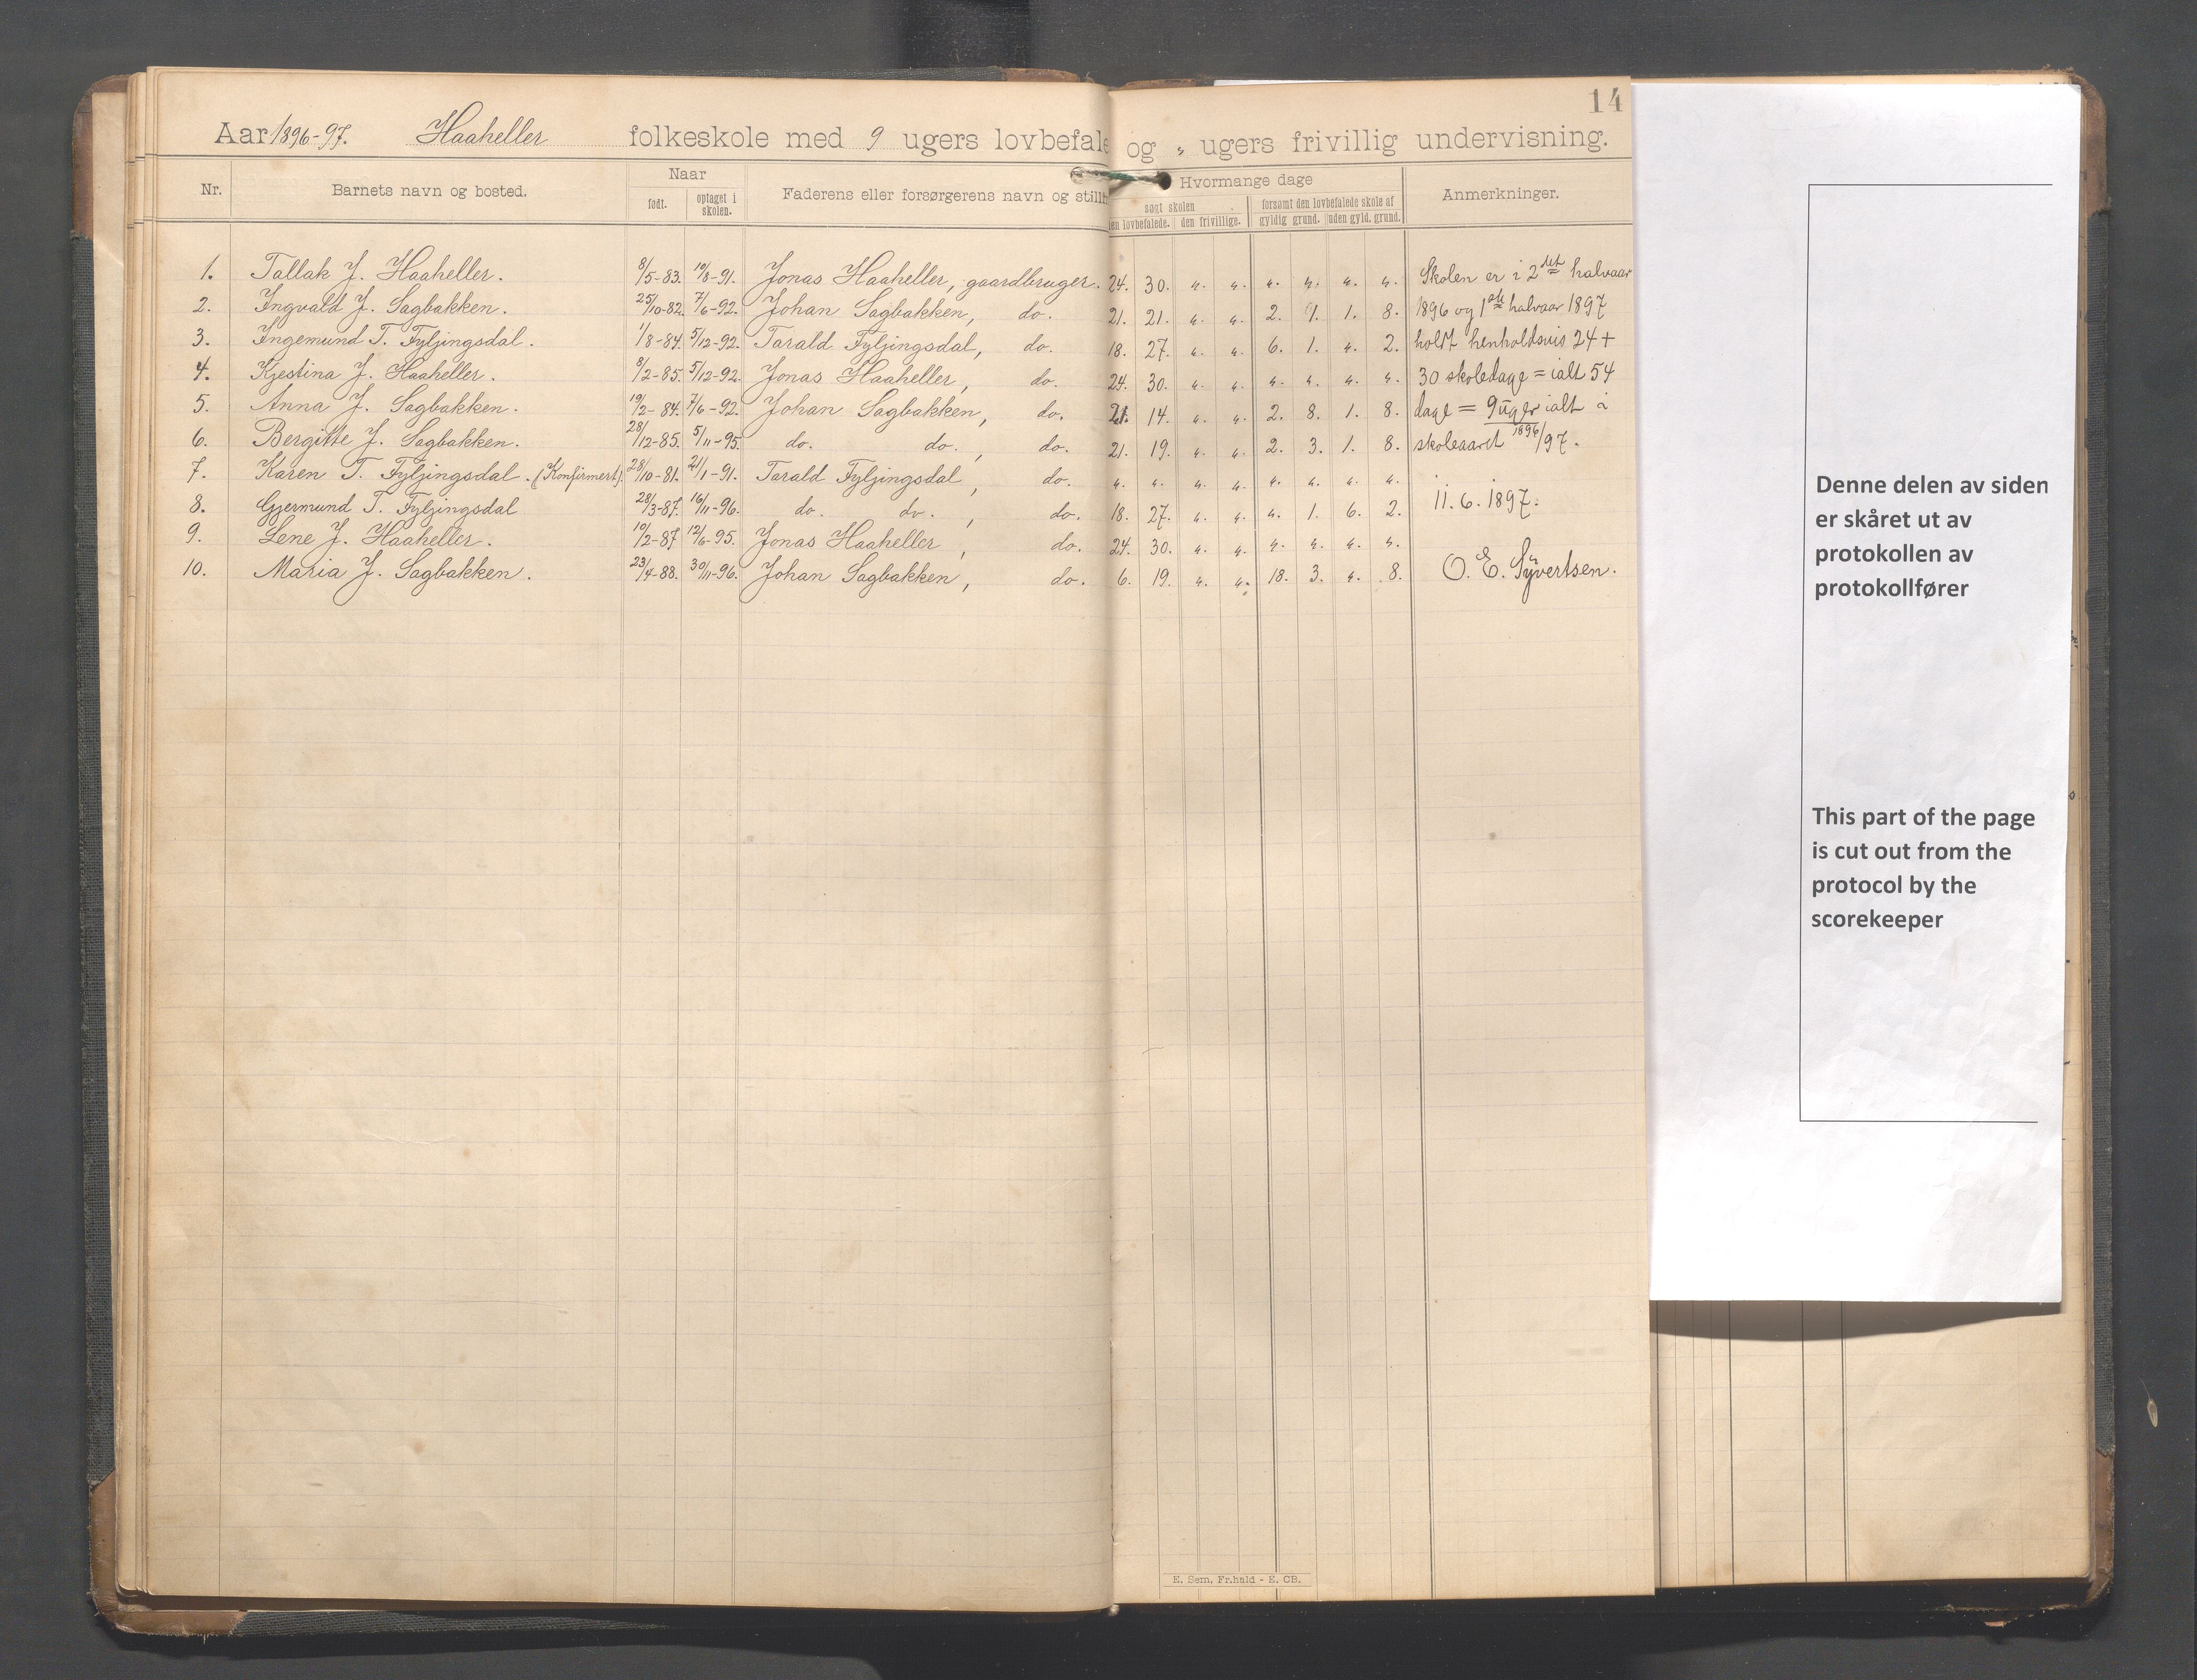 14
Aar 1896-97. Haaheller folkeskole med 9 ugers lovbefale og „ ugers frivillig undervisning.
Nr. Barnets navn og bosted. Naar født. optaget i skolen. Faderens eller forsørgerens navn og still Hvormange dage søgt skolen den lovbefalede. den frivillige. forsømt den lovbefalede skole af gyldig grund. uden gyld. grund. Anmerkninger.
1. Tallak J. Haaheller. 8/5-83. 10/8-91. Jonas Haaheller, gaardbruger. 24. 30. „ „ „ „ „ „ Skolen er i 2det halvaar
2. Ingvald J. Sagbakken. 25/10-82. 7/6-92. Johan Sagbakken, do. 21. 21. „ „ 2. 1. 1. 8. 1896 og 1ste halvaar 1897
3. Ingemund T. Fyljingsdal. 1/8-84. 5/12-92. Tarald Fyljingsdal, do. 18. 27. „ „ 6. 1. „ 2. holdt henholdsvis 24 +
4. Kjestina J. Haaheller. 8/2-85. 5/12-92. Jonas Haaheller, do. 24. 30. „ „ „ „ „ „ 30 skoledage = ialt 54
5. Anna J. Sagbakken. 19/2-84. 7/6-92. Johan Sagbakken, do. 21. 14. „ „ 2. 8. 1. 8. dage = 9 uger ialt i
6. Bergitte J. Sagbakken. 28/12-85. 5/11-95. do. do., do. 21. 19. „ „ 2. 3. 1. 8. skoleaaret 1896/97.
7. Karen T. Fyljingsdal. (Konfirmert). 28/10-81. 21/1-91. Tarald Fyljingsdal, do. „ „ „ „ „ „ „ „
8. Gjermund T. Fyljingsdal 28/3-87. 16/11-96. do. do., do. 18. 27. „ „ „ 1. 6. 2. 11.6.1897.
9. Lene J. Haaheller. 10/2-87 12/6-95. Jonas Haaheller, do. 24. 30. „ „ „ „ „ „
10. Maria J. Sagbakken. 23/4-88. 30/11-96. Johan Sagbakken, do. 6. 19. „ „ 18. 3. „ 8. O. E. Syvertsen.
E. Sem, Fr.hald - E. CB.
Denne delen av siden
er skåret ut av
protokollen av
protokollfører
This part of the page
is cut out from the
protocol by the
scorekeeper